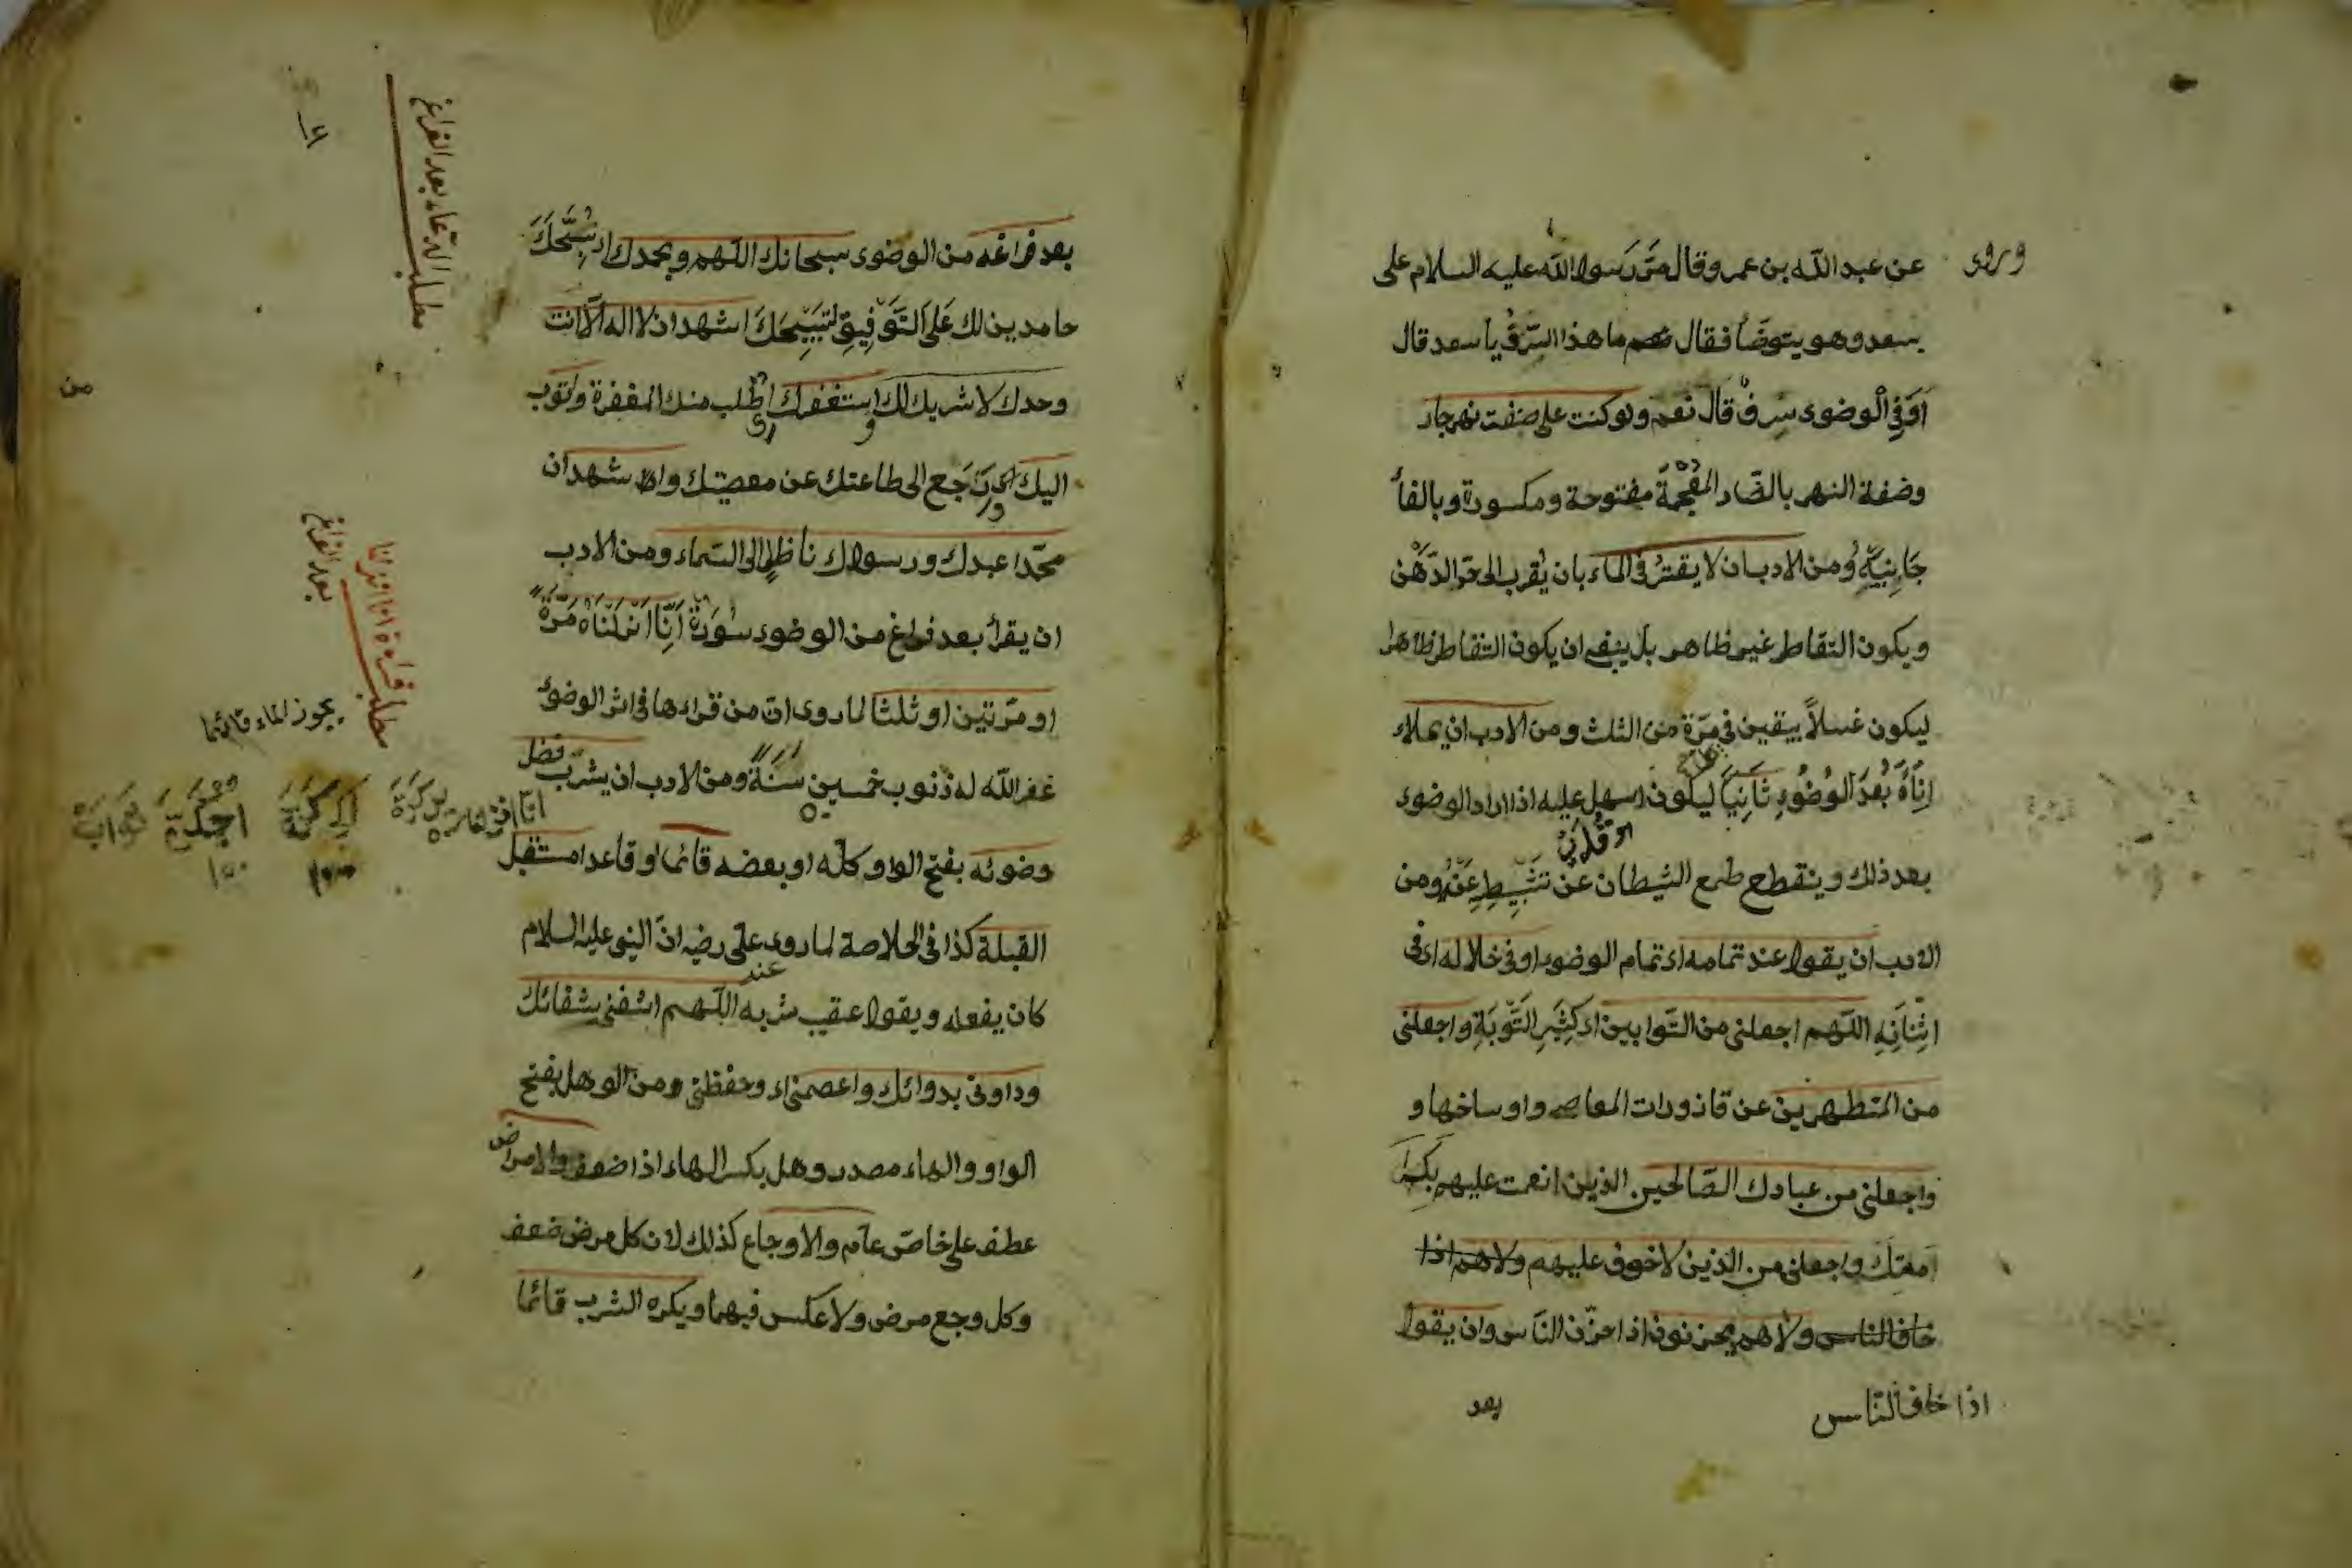 وروى عن عبد الله بن عمر وقال مَرَّ رَسول الله عليه السلام على
بسعد وهو يتوضّأ فقال ما هذا السّرفُ يا سعد قال
اَوَفِي الْوضوء سرفْ قال نعم ولو كنت على ضفت نهر جار
وضفة النهر بالضّاد المُعْجَمَة مفتوحة ومكسورة وبالفأ
جَانِبَيْهِ ومن الادب ان لا يقترُ في الماء بان يُقرب الى حد الدّهْن
ويكون التقاطر غير ظاهر بل ينبغى ان يكون التقاطر ظاهرا
ليكون غسلاً بيقين فى مَرّة من الثلث ومن الادب ان يملاء
اِنَاءَهُ بَعْدَ الْوُضُوءِ ثَانِيًا ليكون اسهل عليه اذا اراد الوضوء
بعد ذلك وينقطع طمع الشيطان عن تثبيطِهِ عَنْهُ ومن
الادب ان يقول عند تمامه اى تمام الوضوء او فى خلاله اى فى
اَثْنَائِهِ اللّهم اجعلنى من التّوابين اى كَثِيرِ التَّوْبَةِ واجعلنى
من المتطهرين عن قاذورات المعاصى واوساخها و
واجعلنى من عبادك الصّالحين الذين انعمت عليهم بكسر
واجعلنى من الذين لا خوف عليهم ولاهم اذا
خاف الناس ولاهم يحزنون اذا احزن النّاس وان يقول
اذا خاف النّاس
بعد
مطلب الدّعاء بعد الفراغ
بعد فراغه من الوضوء سبحانك اللّهم وبحمدك اى نُسَبِّحُكَ
حامدين لك عَلَى التَّوْفِيقِ لِتَسْبِيحِكَ اشهد ان لا اله الّا انت
وحدك لا شريك لك استغفرك اى اطلب منك المغفرة واتوب
اليك اى ارجع الى طاعتك عن معصيتك واشهد ان
محمّدا عبدك ورسولك ناظرا الى السّماء ومن الادب
ان يقرأ بعد فراغ من الوضوء سُورَةَ اِنَّا اَنْزَلْنَاهُ مَرَّةً
او مرّتين او ثلثا لما روى انّ من قراءها فى اثر الوضوء
غفر الله له ذنوب خمسين سَنَةً ومن الادب ان يشرب فضل
وضوئه بفتح الواو كلّه او بعضه قائما او قاعدا مستقبل
القبلة كذا فى الخلاصة لما روى على رضه انّ النبى عليه السلام
كان يفعله ويقول عقيب شربه اللّهم اشفنى بشفائك
وداونى بدوائك واعصمنى اى وحفظنى ومن الوهل بفتح
الواو والهاء مصدر وهل بكسر الهاء اذا ضعف والامراض
عطف على خاصّ عام والاوجاع كذلك لان كل مرض ضعف
وكل وجع مرض ولا عكس فيهما ويكره الشرب قائما
من
مطلب قراءة انا انزلنا
بعد الفراغ
يجوز الماء قائما